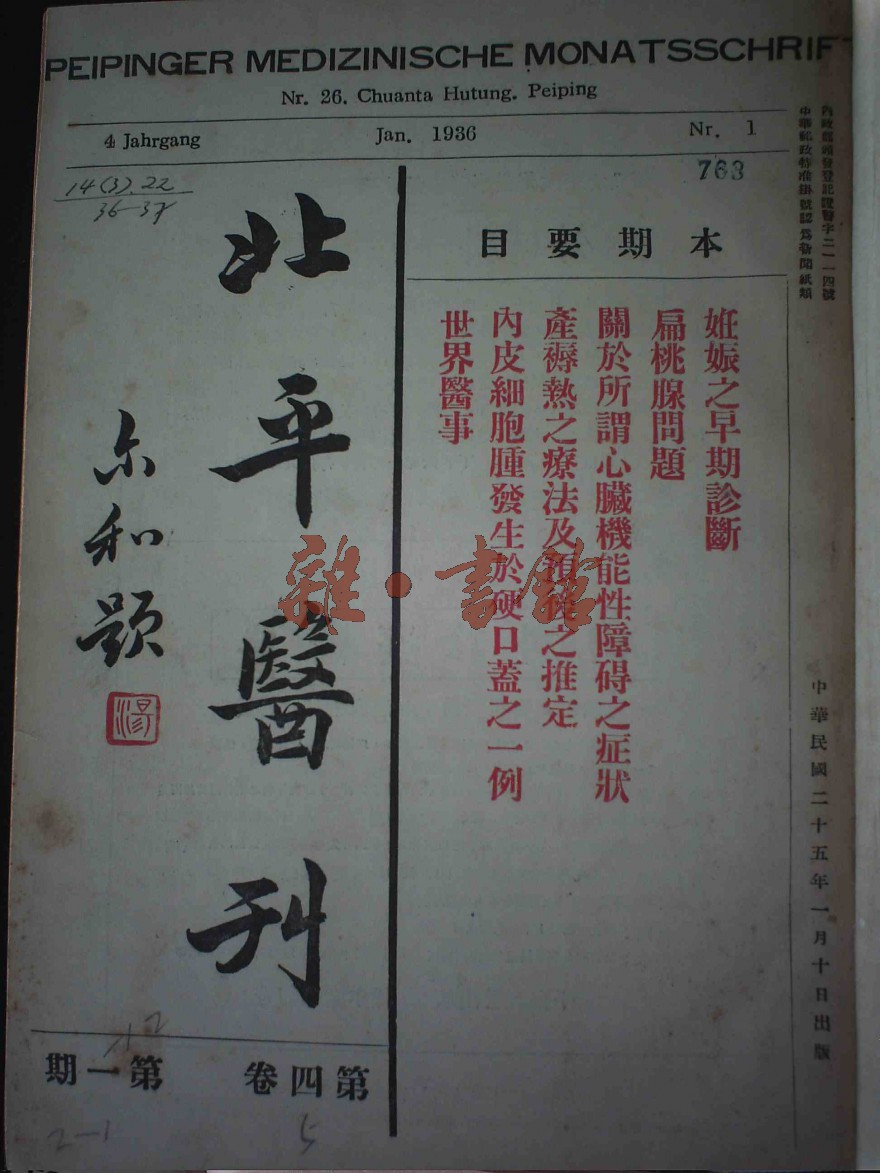 PEIPINGER MEDIZINISCHE MONATSSCHRIFT
Nr. 26. Chuanta Hutung. Peiping
4 Jahrgang Jan. 1936 Nr. 1
763
14(3).22
36-37
內政部頒發登記證警字二一一四號
中華郵政特准掛號認爲新聞紙類
本期要目
姙娠之早期診斷
扁桃腺問題
關於所謂心臟機能性障碍之症狀
產褥熱之療法及預後之推定
內皮細胞腫發生於硬口蓋之一例
世界醫事
北平醫刊
尒和題
湯
雜·書館
中華民國二十五年一月十日出版
第四卷 第一期
5
2-1